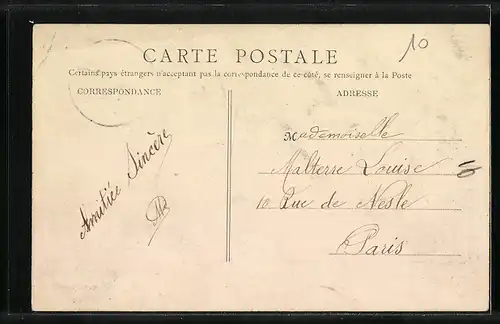 10
CARTE POSTALE
Certains pays étrangers n'acceptant pas la correspondance de ce côté, se renseigner à la Poste
CORRESPONDANCE
ADRESSE
Amitiée Sincère
Mademoiselle
Malterre Louise
10 Rue de Nesle
Paris